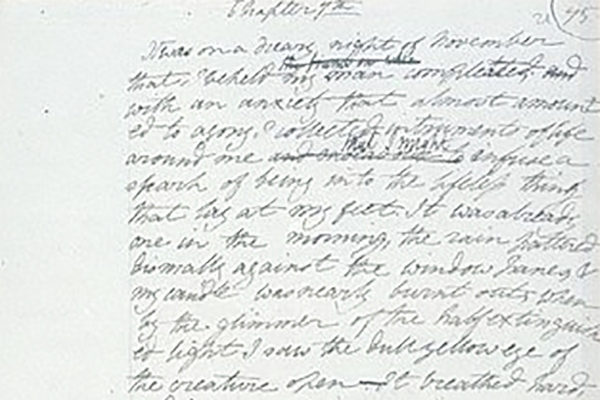 Chapter 7th
95
It was on a dreary night of November
that I beheld my man compleated and
with an anxiety that almost amount
ed to agony, I collected instruments of life
that I might
around me and infuse a
spark of being into the lifeless thing
that lay at my feet. It was already
one in the morning, the rain pattered
dismally against the window panes, &
my candle was nearly burnt out, when
by the glimmer of the half extinguish
ed light I saw the dull yellow eye of
the creature open — It breathed hard,